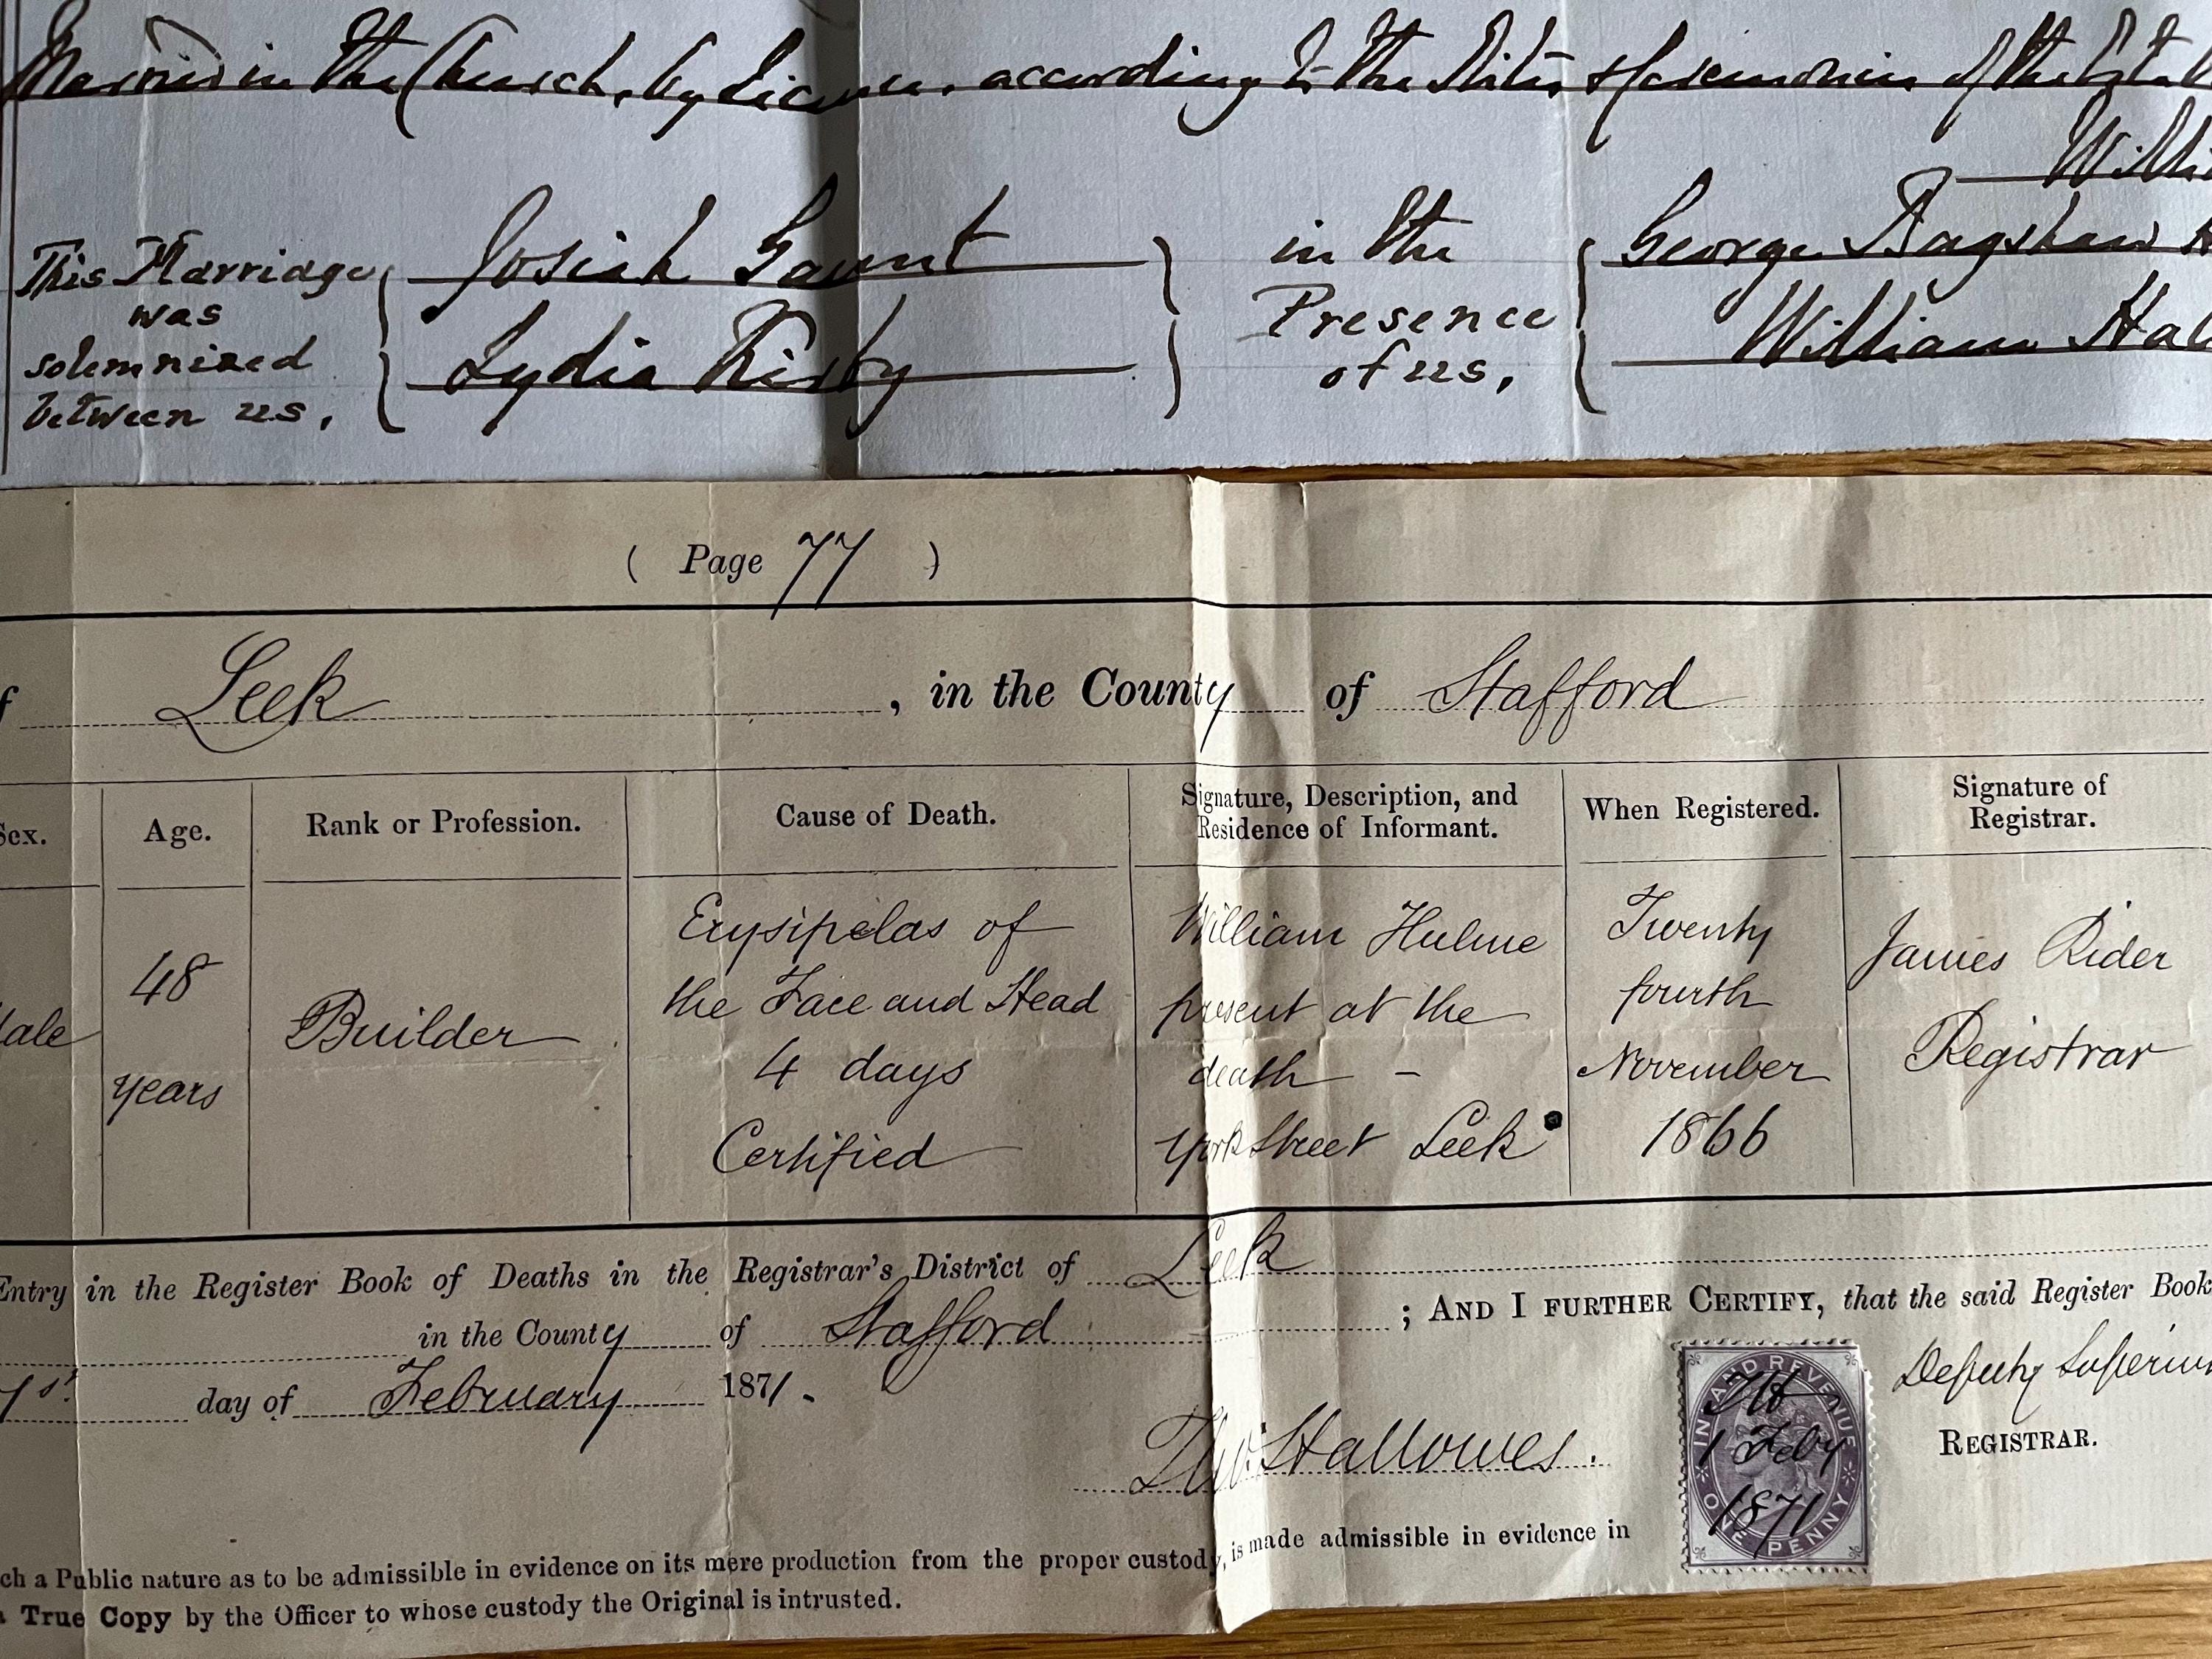 Married in the Church, by Licence, according to the Rites & Ceremonies of the
Willi
This Marriage
was
solemnized
between us,
Josiah Gaunt
Lydia Kirby
in the
Presence
of us,
George Bagshaw
William Hal
( Page 77 )
f Leek, in the County of Stafford
Sex.
Age.
Rank or Profession.
Cause of Death.
Signature, Description, and
Residence of Informant.
When Registered.
Signature of
Registrar.
ale
48
years
Builder
Erysipelas of
the Face and Head
4 days
Certified
William Hulme
present at the
death –
York Street Leek
Twenty
fourth
November
1866
James Rider
Registrar
Entry in the Register Book of Deaths in the Registrar's District of Leek
in the County of Stafford ; AND I FURTHER CERTIFY, that the said Register Book
1st day of February 1871.
Thos Hallowes.
INLAND REVENUE
ONE PENNY
TH
1 Feby
1871
Deputy Superin
REGISTRAR.
ch a Public nature as to be admissible in evidence on its mere production from the proper custody, is made admissible in evidence in
a True Copy by the Officer to whose custody the Original is intrusted.